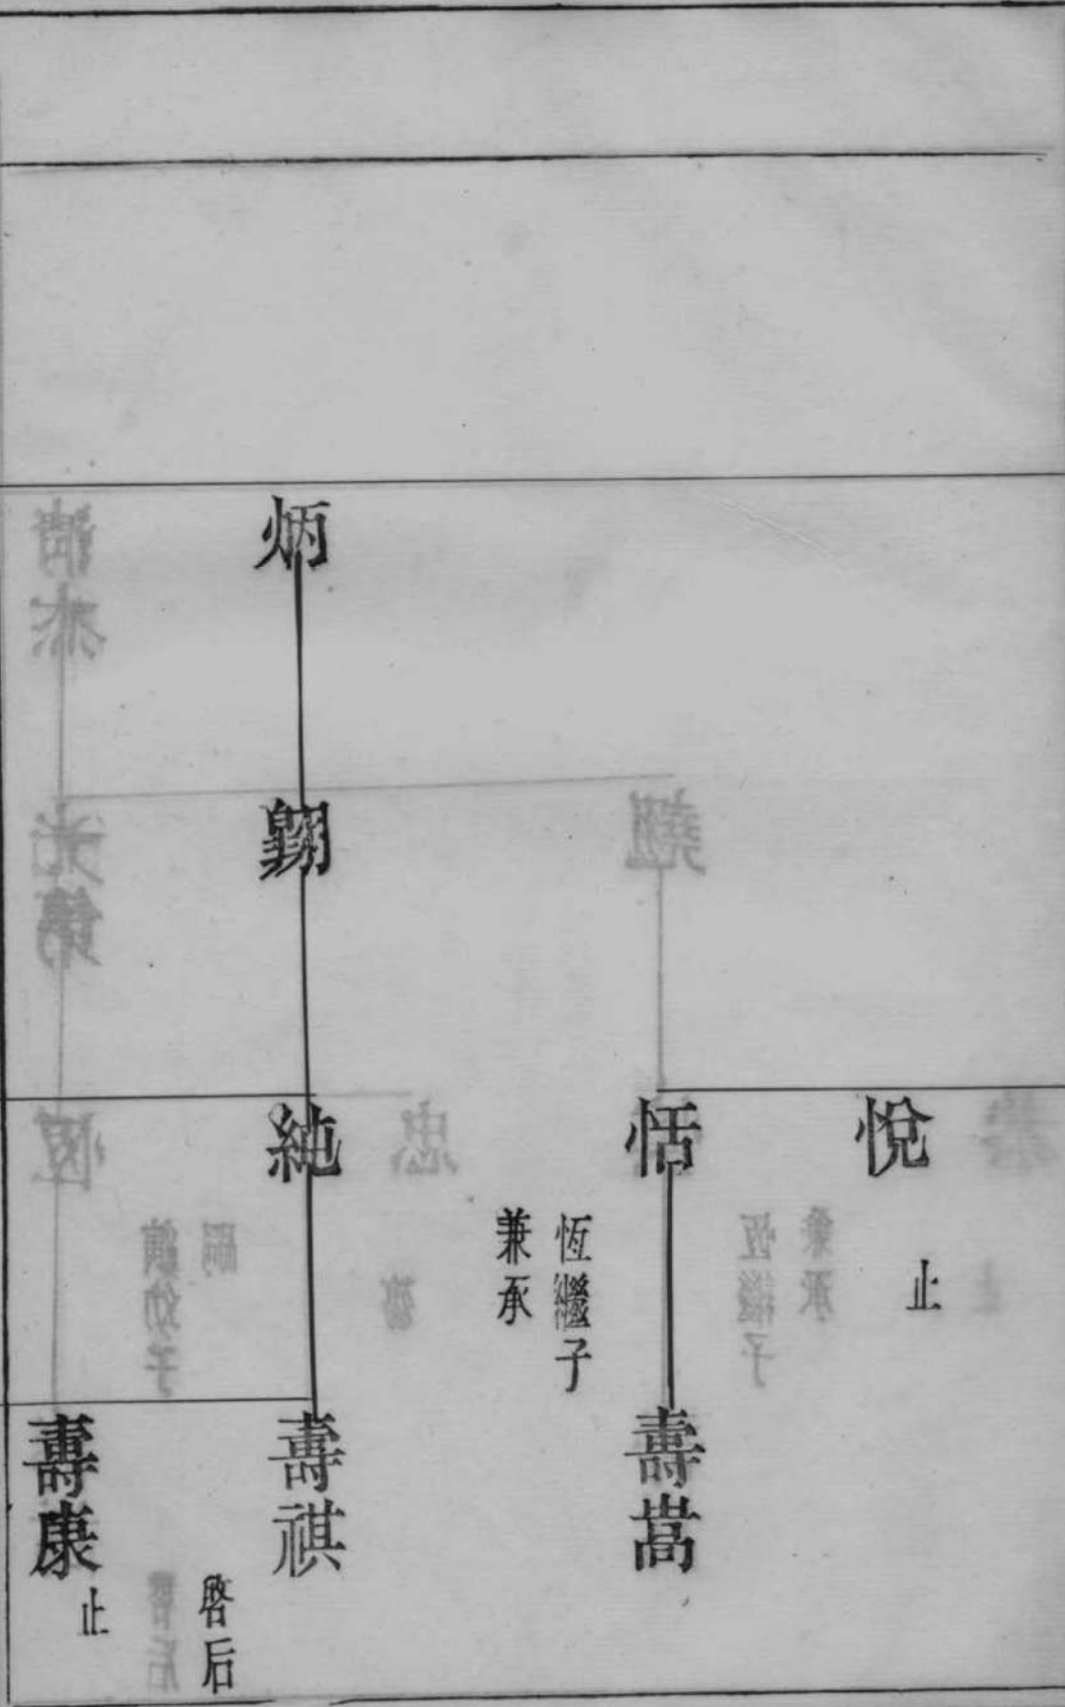 悅
止
恬
恆繼子
兼承
壽嵩
炳
翾
純
壽祺
啓后
壽康
止